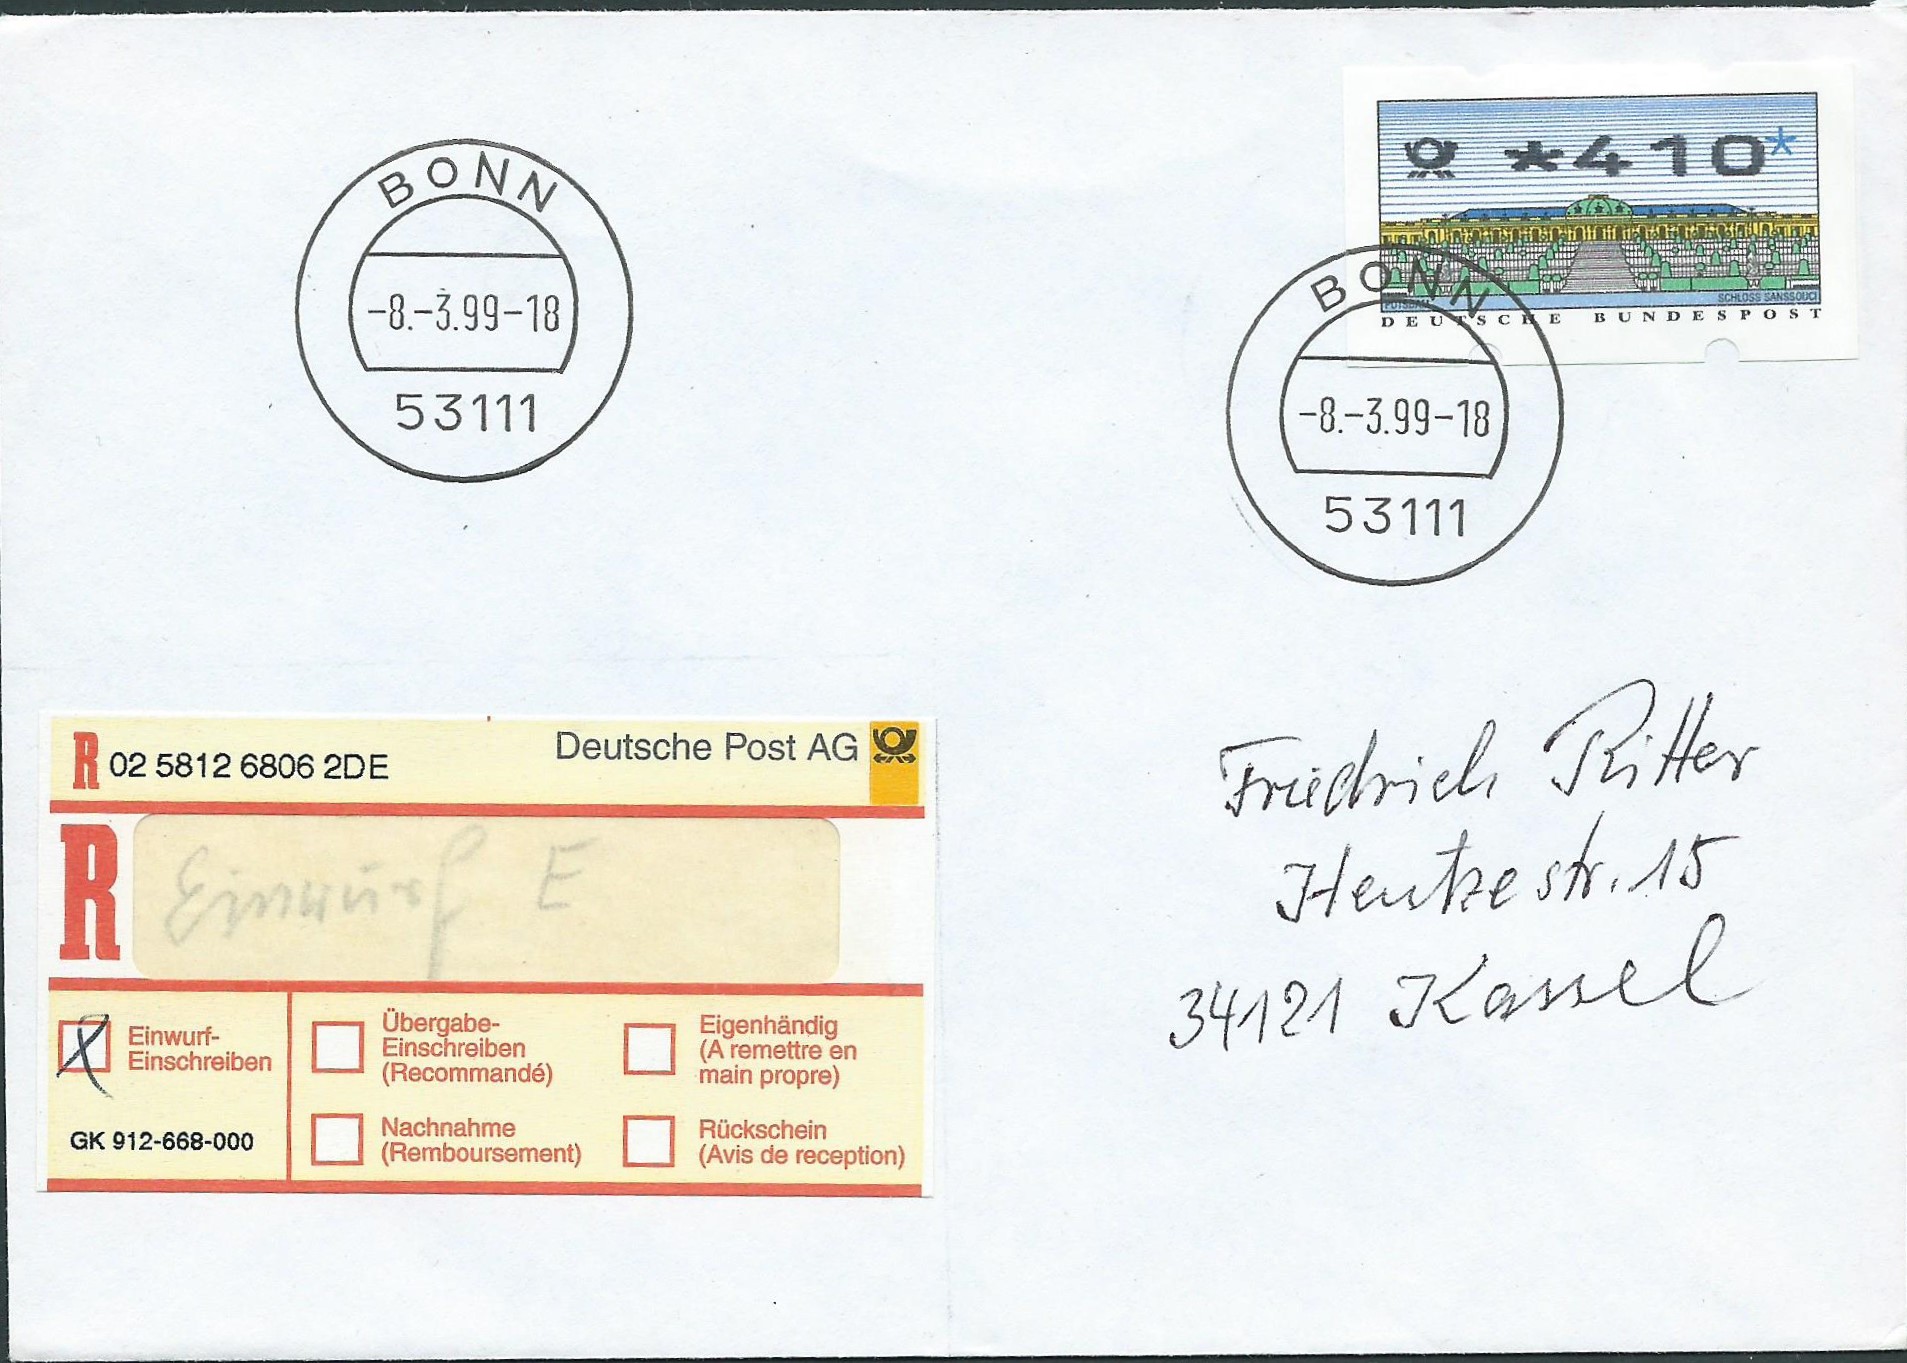 BONN
-8.-3.99-18
53111
*410*
POTSDAM
SCHLOSS SANSSOUCI
DEUTSCHE BUNDESPOST
BONN
-8.-3.99-18
53111
R 02 5812 6806 2DE
Deutsche Post AG
R
Einwurf E
Einwurf-
Einschreiben
GK 912-668-000
Übergabe-
Einschreiben
(Recommandé)
Eigenhändig
(A remettre en
main propre)
Nachnahme
(Remboursement)
Rückschein
(Avis de reception)
Friedrich Ritter
Hentzestr. 15
34121 Kassel